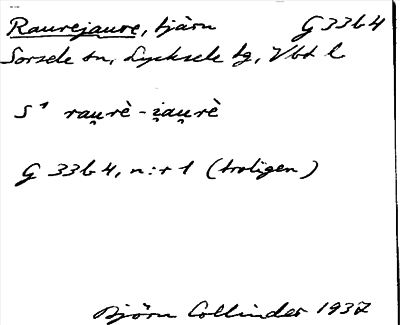 Raurejaure, tjärn G 33b4
Sorsele sn, Lycksele tg, Vbt l
S¹ rau̯rè - i̯au̯rè
G 33b4, n:r 1 (troligen)
Björn Collinder 1937